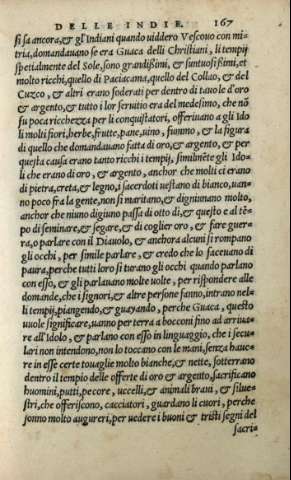 DELLE INDIE. 167
si sa ancora, & gl'Indiani quando uiddero Vescouo con mi-
tria, domandauano se era Guaca delli Christiani, li tempij
spetialmente del Sole, sono grandissimi, & suntuosissimi, et
molto ricchi, quello di Paciacama, quello del Collao, & del
Cuzco, & altri erano foderati per dentro di tauole d'oro
& argento, & tutto i lor seruitio era del medesimo, che nõ
fu poca ricchezza per li conquistatori, offeriuano a gli Ido
li molti fiori, herbe, frutte, pane, uino, fummo, & la figura
di quello che domandauano fatta di oro, & argento, & per
questa causa erano tanto ricchi i tempij, similmẽte gli Ido
li che erano di oro, & argento, anchor che molti ci erano
di pietra, creta, & legno, i sacerdoti uestano di bianco, uan-
no poco fra la gente, non si maritano, & digiunano molto,
anchor che niuno digiuno passa di otto dì, & questo e al tẽ-
po di seminare, & segare, & di coglier oro, & fare guer-
ra, o parlare con il Diauolo, & anchora alcuni si rompano
gli occhi, per simile parlare, & credo che lo faceuano di
paura, perche tutti loro si turano gli occhi quando parlano
con esso, & gli parlauano molte uolte, per rispondere alle
domande, che i signori, & altre persone fanno, intrano nel-
li tempij, piangendo, & guayando, perche Guaca, questo
uuole significare, uanno per terra a bocconi fino ad arriua-
re all'Idolo, & parlano con esso in linguaggio, che i secu-
lari non intendono, non lo toccano con le mani, senza haue-
re in esse certe touaglie molto bianche, & nette, sotterrano
dentro il tempio delle offerte di oro & argento, sacrificano
huomini, putti, pecore, uccelli, & animali braui, & silue-
stri, che offeriscono, cacciatori, guardano li cuori, perche
sonno molto augureri, per uedere i buoni & tristi segni del
sacri-